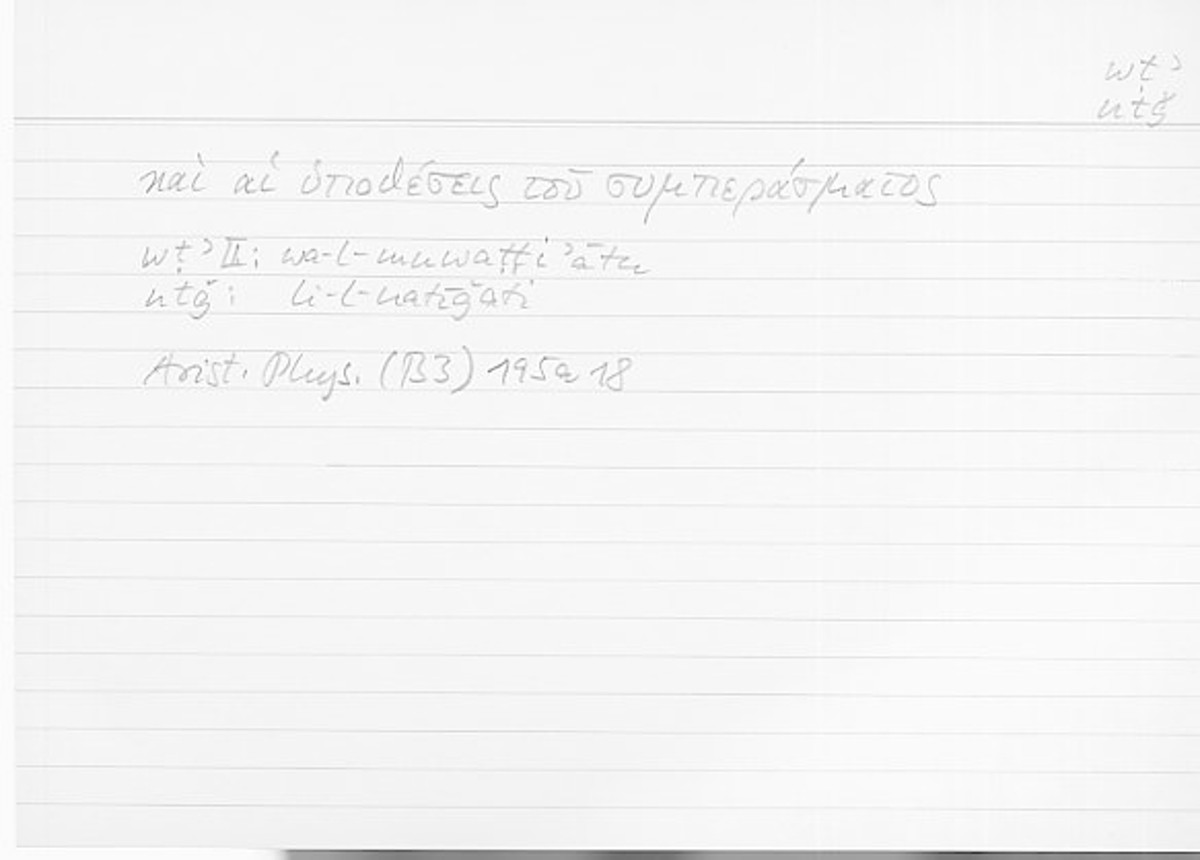 wṭʾ
ntǧ
καὶ αἱ ὑποθέσεις τοῦ συμπεράσματος
wṭʾ II: wa-l-muwaṭṭiʾātu
ntǧ: li-l-natīǧati
Arist. Phys. (B3) 195a 18